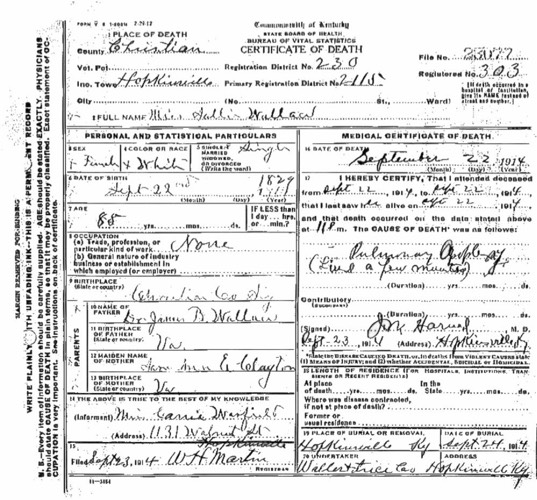 FORM V S 1-500M 2-29-12
Commonwealth of Kentucky
STATE BOARD OF HEALTH
BUREAU OF VITAL STATISTICS
CERTIFICATE OF DEATH
1 PLACE OF DEATH
County Christian
File No.
Vot. Pct. Registration District No. 230
Registered No. 303
Inc. Town Hopkinsville Primary Registration District No. 2115
(If death occurred in a hospital or institution, give its NAME instead of street and number.)
City (No. St., Ward)
2 FULL NAME Miss Sallie Wallace
PERSONAL AND STATISTICAL PARTICULARS
3 SEX Female
4 COLOR OR RACE White
5 SINGLE MARRIED WIDOWED, OR DIVORCED (Write the word) Single
6 DATE OF BIRTH
Sept 22nd 1829
(Month) (Day) (Year)
7 AGE
85 yrs. mos. ds.
IF LESS than 1 day... hrs. or min.?
8 OCCUPATION
(a) Trade, profession, or particular kind of work None
(b) General nature of industry business or establishment in which employed (or employer)
9 BIRTHPLACE
(State or country) Christian Co Ky
PARENTS
10 NAME OF FATHER Dr James B Wallace
11 BIRTHPLACE OF FATHER (State or country) Va
12 MAIDEN NAME OF MOTHER E Clayton
13 BIRTHPLACE OF MOTHER (State or country) Va
14 THE ABOVE IS TRUE TO THE BEST OF MY KNOWLEDGE
(Informant) Miss Carrie
(Address) 1131 Walnut St
Hopkinsville
15
Filed Sept 23, 1914 W H Martin
REGISTRAR
11-3184
MEDICAL CERTIFICATE OF DEATH.
16 DATE OF DEATH
September 22, 1914
(Month) (Day) (Year)
17 I HEREBY CERTIFY, That I attended deceased
from Sept 22, 1914, to Sept 22, 1914,
that I last saw her alive on Sept 22, 1914,
and that death occurred on the date stated above
at m. The CAUSE OF DEATH* was as follows:
Pulmonary
(Lived a few minutes)
(Duration) yrs. mos. ds.
Contributory
(Secondary)
(Duration) yrs. mos. ds.
(Signed) M. D.
Sept 23, 1914 (Address) Hopkinsville Ky
*State the DISEASE CAUSING DEATH, or, in deaths from VIOLENT CAUSES state (1) MEANS OF INJURY; and (2) whether ACCIDENTAL, SUICIDAL or HOMICIDAL.
18 LENGTH OF RESIDENCE (FOR HOSPITALS, INSTITUTIONS, TRANSIENTS OR RECENT RESIDENTS)
At place of death yrs. mos. ds. In the State yrs. mos. ds.
Where was disease contracted, if not at place of death?
Former or usual residence
19 PLACE OF BURIAL OR REMOVAL
Hopkinsville Ky
DATE OF BURIAL
Sept 24, 1914
20 UNDERTAKER
ADDRESS
Hopkinsville Ky
MARGIN RESERVED FOR BINDING
WRITE PLAINLY WITH UNFADING INK—THIS IS A PERMANENT RECORD
N. B.—Every item of information should be carefully supplied. AGE should be stated EXACTLY. PHYSICIANS should state CAUSE OF DEATH in plain terms, so that it may be properly classified. Exact statement of OCCUPATION is very important. See instructions on back of certificate.